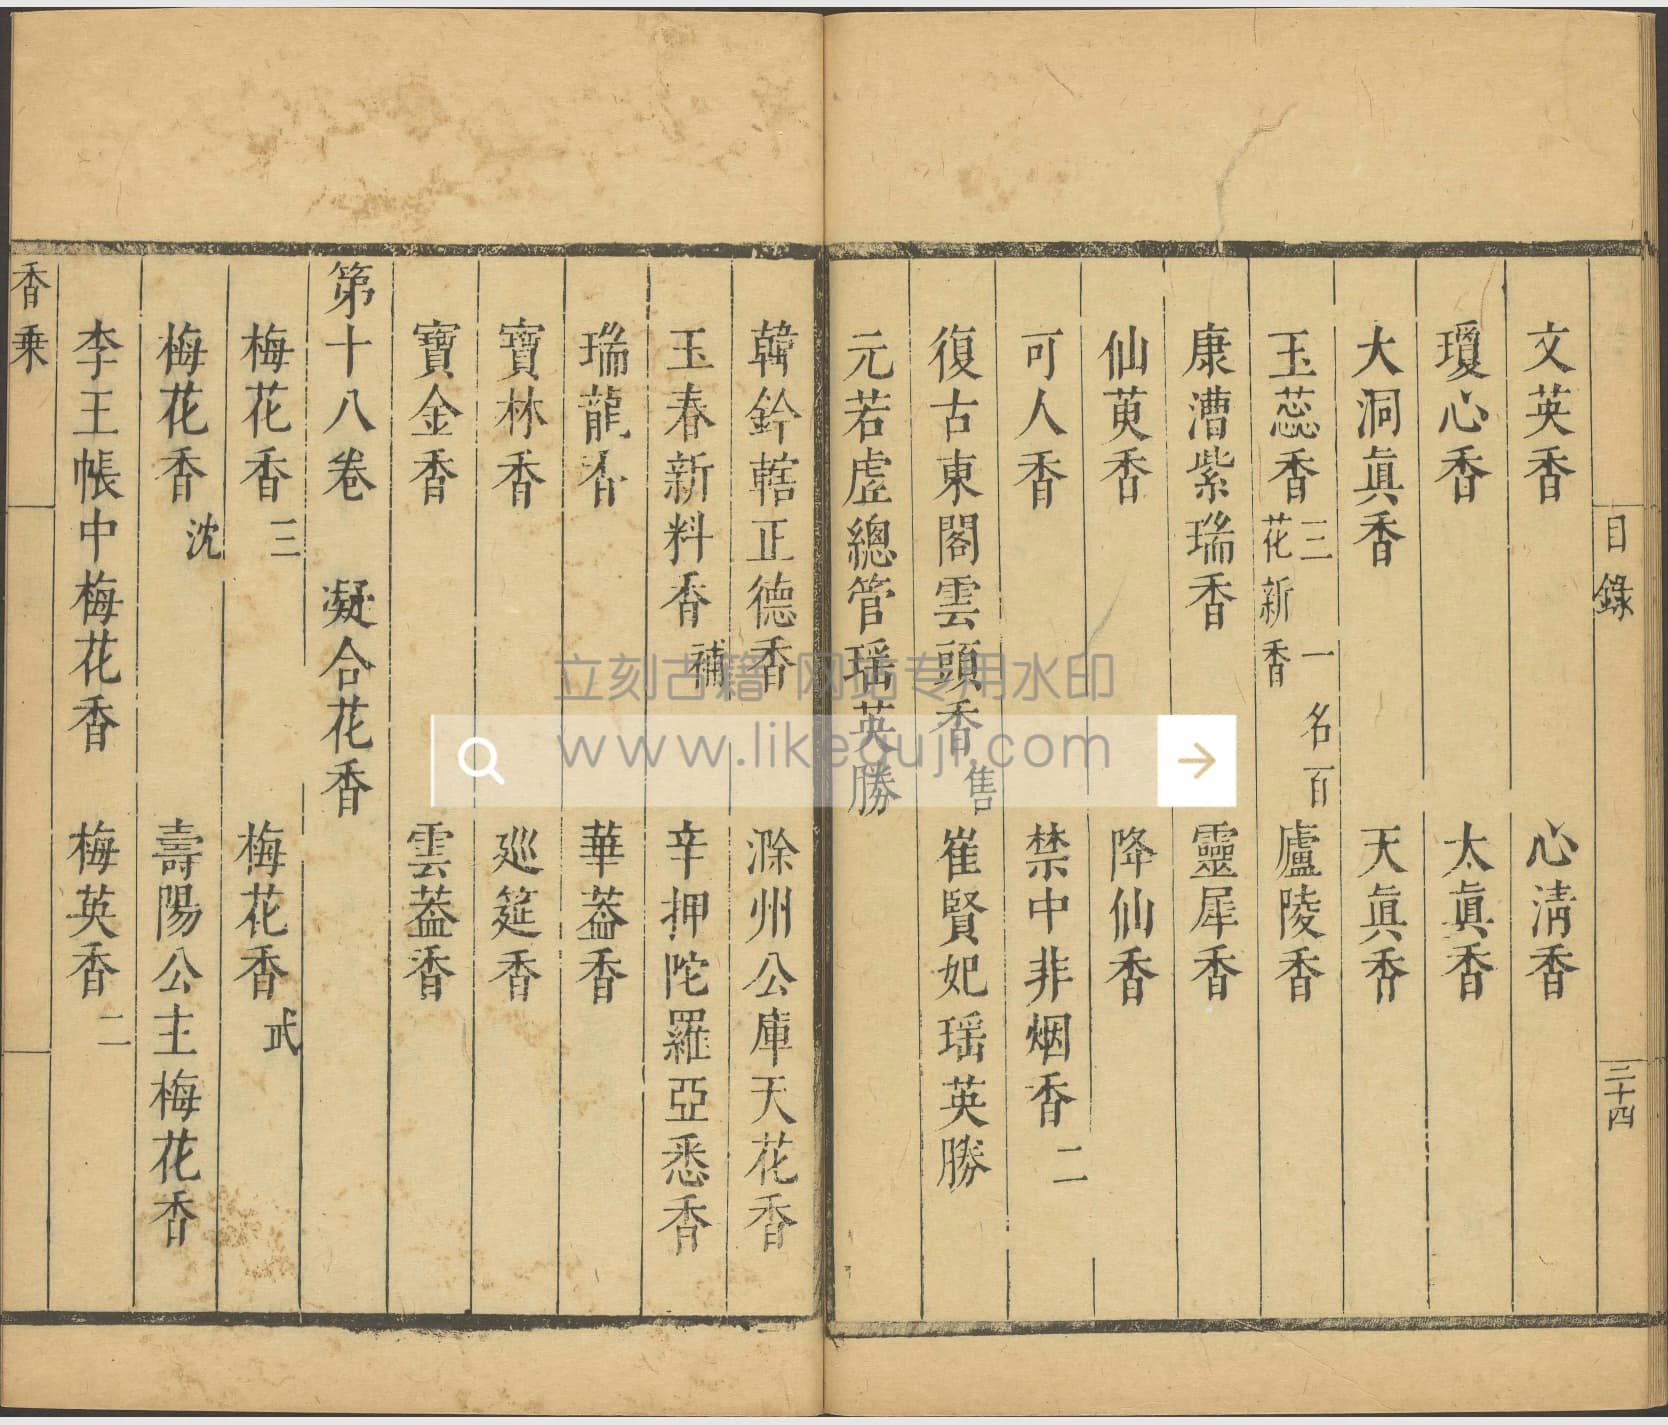 目錄
三十四
文英香 心清香
瓊心香 太眞香
大洞眞香 天眞香
玉蕊香 三 一名百花新香 廬陵香
康漕紫瑞香 靈犀香
仙萸香 降仙香
可人香 禁中非烟香 二
復古東閣雲頭香 售 崔賢妃瑶英勝
元若虛總管瑶英勝
韓鈐轄正德香 滁州公庫天花香
玉春新料香 補 辛押陀羅亞悉香
瑞龍香 華葢香
寶林香 廵筵香
寶金香 雲葢香
第十八卷 凝合花香
梅花香 三 梅花香 武
梅花香 沈 壽陽公主梅花香
李王帳中梅花香 梅英香 二
香乗
立刻古籍 网站专用水印
www.likeguji.com